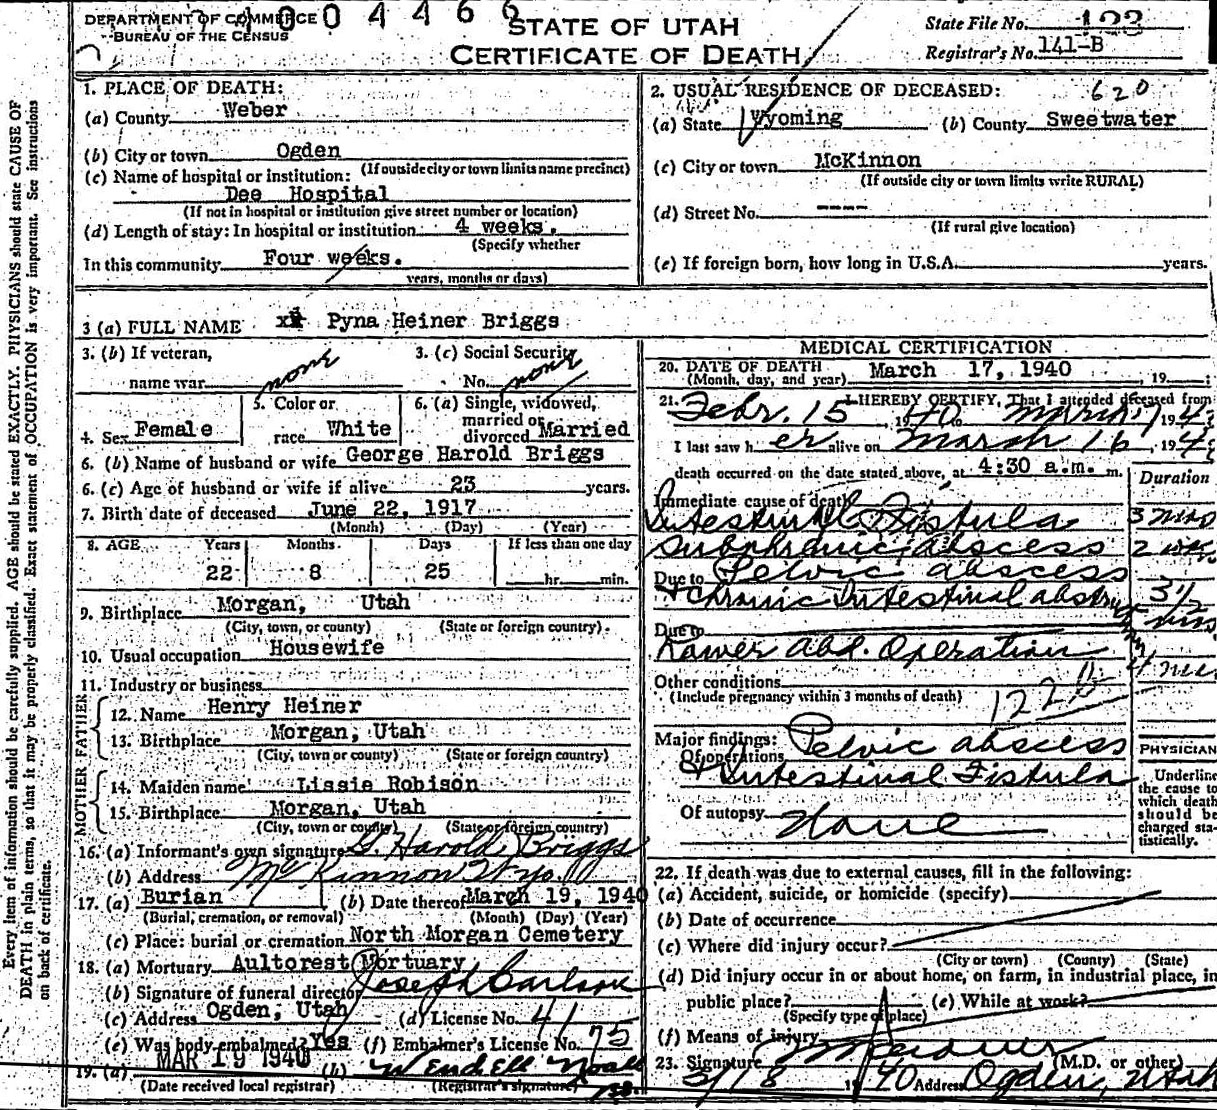 DEPARTMENT OF COMMERCE
BUREAU OF THE CENSUS
004466
STATE OF UTAH
CERTIFICATE OF DEATH
State File No. 123
Registrar's No. 141-B
1. PLACE OF DEATH:
(a) County Weber
(b) City or town Ogden
(If outside city or town limits name precinct)
(c) Name of hospital or institution:
Dee Hospital
(If not in hospital or institution give street number or location)
(d) Length of stay: In hospital or institution 4 weeks.
(Specify whether
In this community Four weeks.
years, months or days)
2. USUAL RESIDENCE OF DECEASED: 620
(a) State Wyoming (b) County Sweetwater
(c) City or town McKinnon
(If outside city or town limits write RURAL)
(d) Street No. ----
(If rural give location)
(e) If foreign born, how long in U.S.A. years.
3 (a) FULL NAME Pyna Heiner Briggs
3. (b) If veteran,
name war none
3. (c) Social Security
No. none
4. Sex Female
5. Color or
race White
6. (a) Single, widowed,
married or
divorced Married
6. (b) Name of husband or wife George Harold Briggs
6. (c) Age of husband or wife if alive 23 years.
7. Birth date of deceased June 22, 1917
(Month) (Day) (Year)
8. AGE Years Months Days If less than one day
22 8 25 hr. min.
9. Birthplace Morgan, Utah
(City, town, or county) (State or foreign country)
10. Usual occupation Housewife
11. Industry or business
FATHER
12. Name Henry Heiner
13. Birthplace Morgan, Utah
(City, town or county) (State or foreign country)
MOTHER
14. Maiden name Lissie Robison
15. Birthplace Morgan, Utah
(City, town or county) (State or foreign country)
16. (a) Informant's own signature G. Harold Briggs
(b) Address McKinnon Wyo.
17. (a) Burian (b) Date thereof March 19, 1940
(Burial, cremation, or removal) (Month) (Day) (Year)
(c) Place: burial or cremation North Morgan Cemetery
18. (a) Mortuary Aultorest Mortuary
(b) Signature of funeral director Joseph Carlson
(c) Address Ogden, Utah (d) License No. 41
(e) Was body embalmed? Yes (f) Embalmer's License No. 75
19. (a) MAR 19 1940 (b) Wendell Noall
(Date received local registrar) (Registrar's signature)
MEDICAL CERTIFICATION
20. DATE OF DEATH
(Month, day, and year) March 17, 1940, 19
21. I HEREBY CERTIFY, That I attended deceased from
Febr. 15 1940 to March 17 194
I last saw her alive on March 16, 194
death occurred on the date stated above, at 4:30 a.m. m.
Duration
Immediate cause of death
Intestinal Fistula 3 mos
Subphrenic abscess 2 wks
Due to Pelvic abscess
+ Chronic Intestinal obstruction 3 1/2 mos
Due to
Lower Abd. Operation 4
Other conditions
(Include pregnancy within 3 months of death)
122B
Major findings:
Of operations Pelvic abscess
+ Intestinal Fistula
Of autopsy None
PHYSICIAN
Underline
the cause to
which death
should be
charged sta-
tistically.
22. If death was due to external causes, fill in the following:
(a) Accident, suicide, or homicide (specify)
(b) Date of occurrence
(c) Where did injury occur?
(City or town) (County) (State)
(d) Did injury occur in or about home, on farm, in industrial place, in
public place? (e) While at work?
(Specify type of place)
(f) Means of injury
23. Signature (M.D. or other)
3/18 1940 Address Ogden, Utah
Every item of information should be carefully supplied. AGE should be stated EXACTLY. PHYSICIANS should state CAUSE OF
DEATH in plain terms, so that it may be properly classified. Exact statement of OCCUPATION is very important. See instructions
on back of certificate.